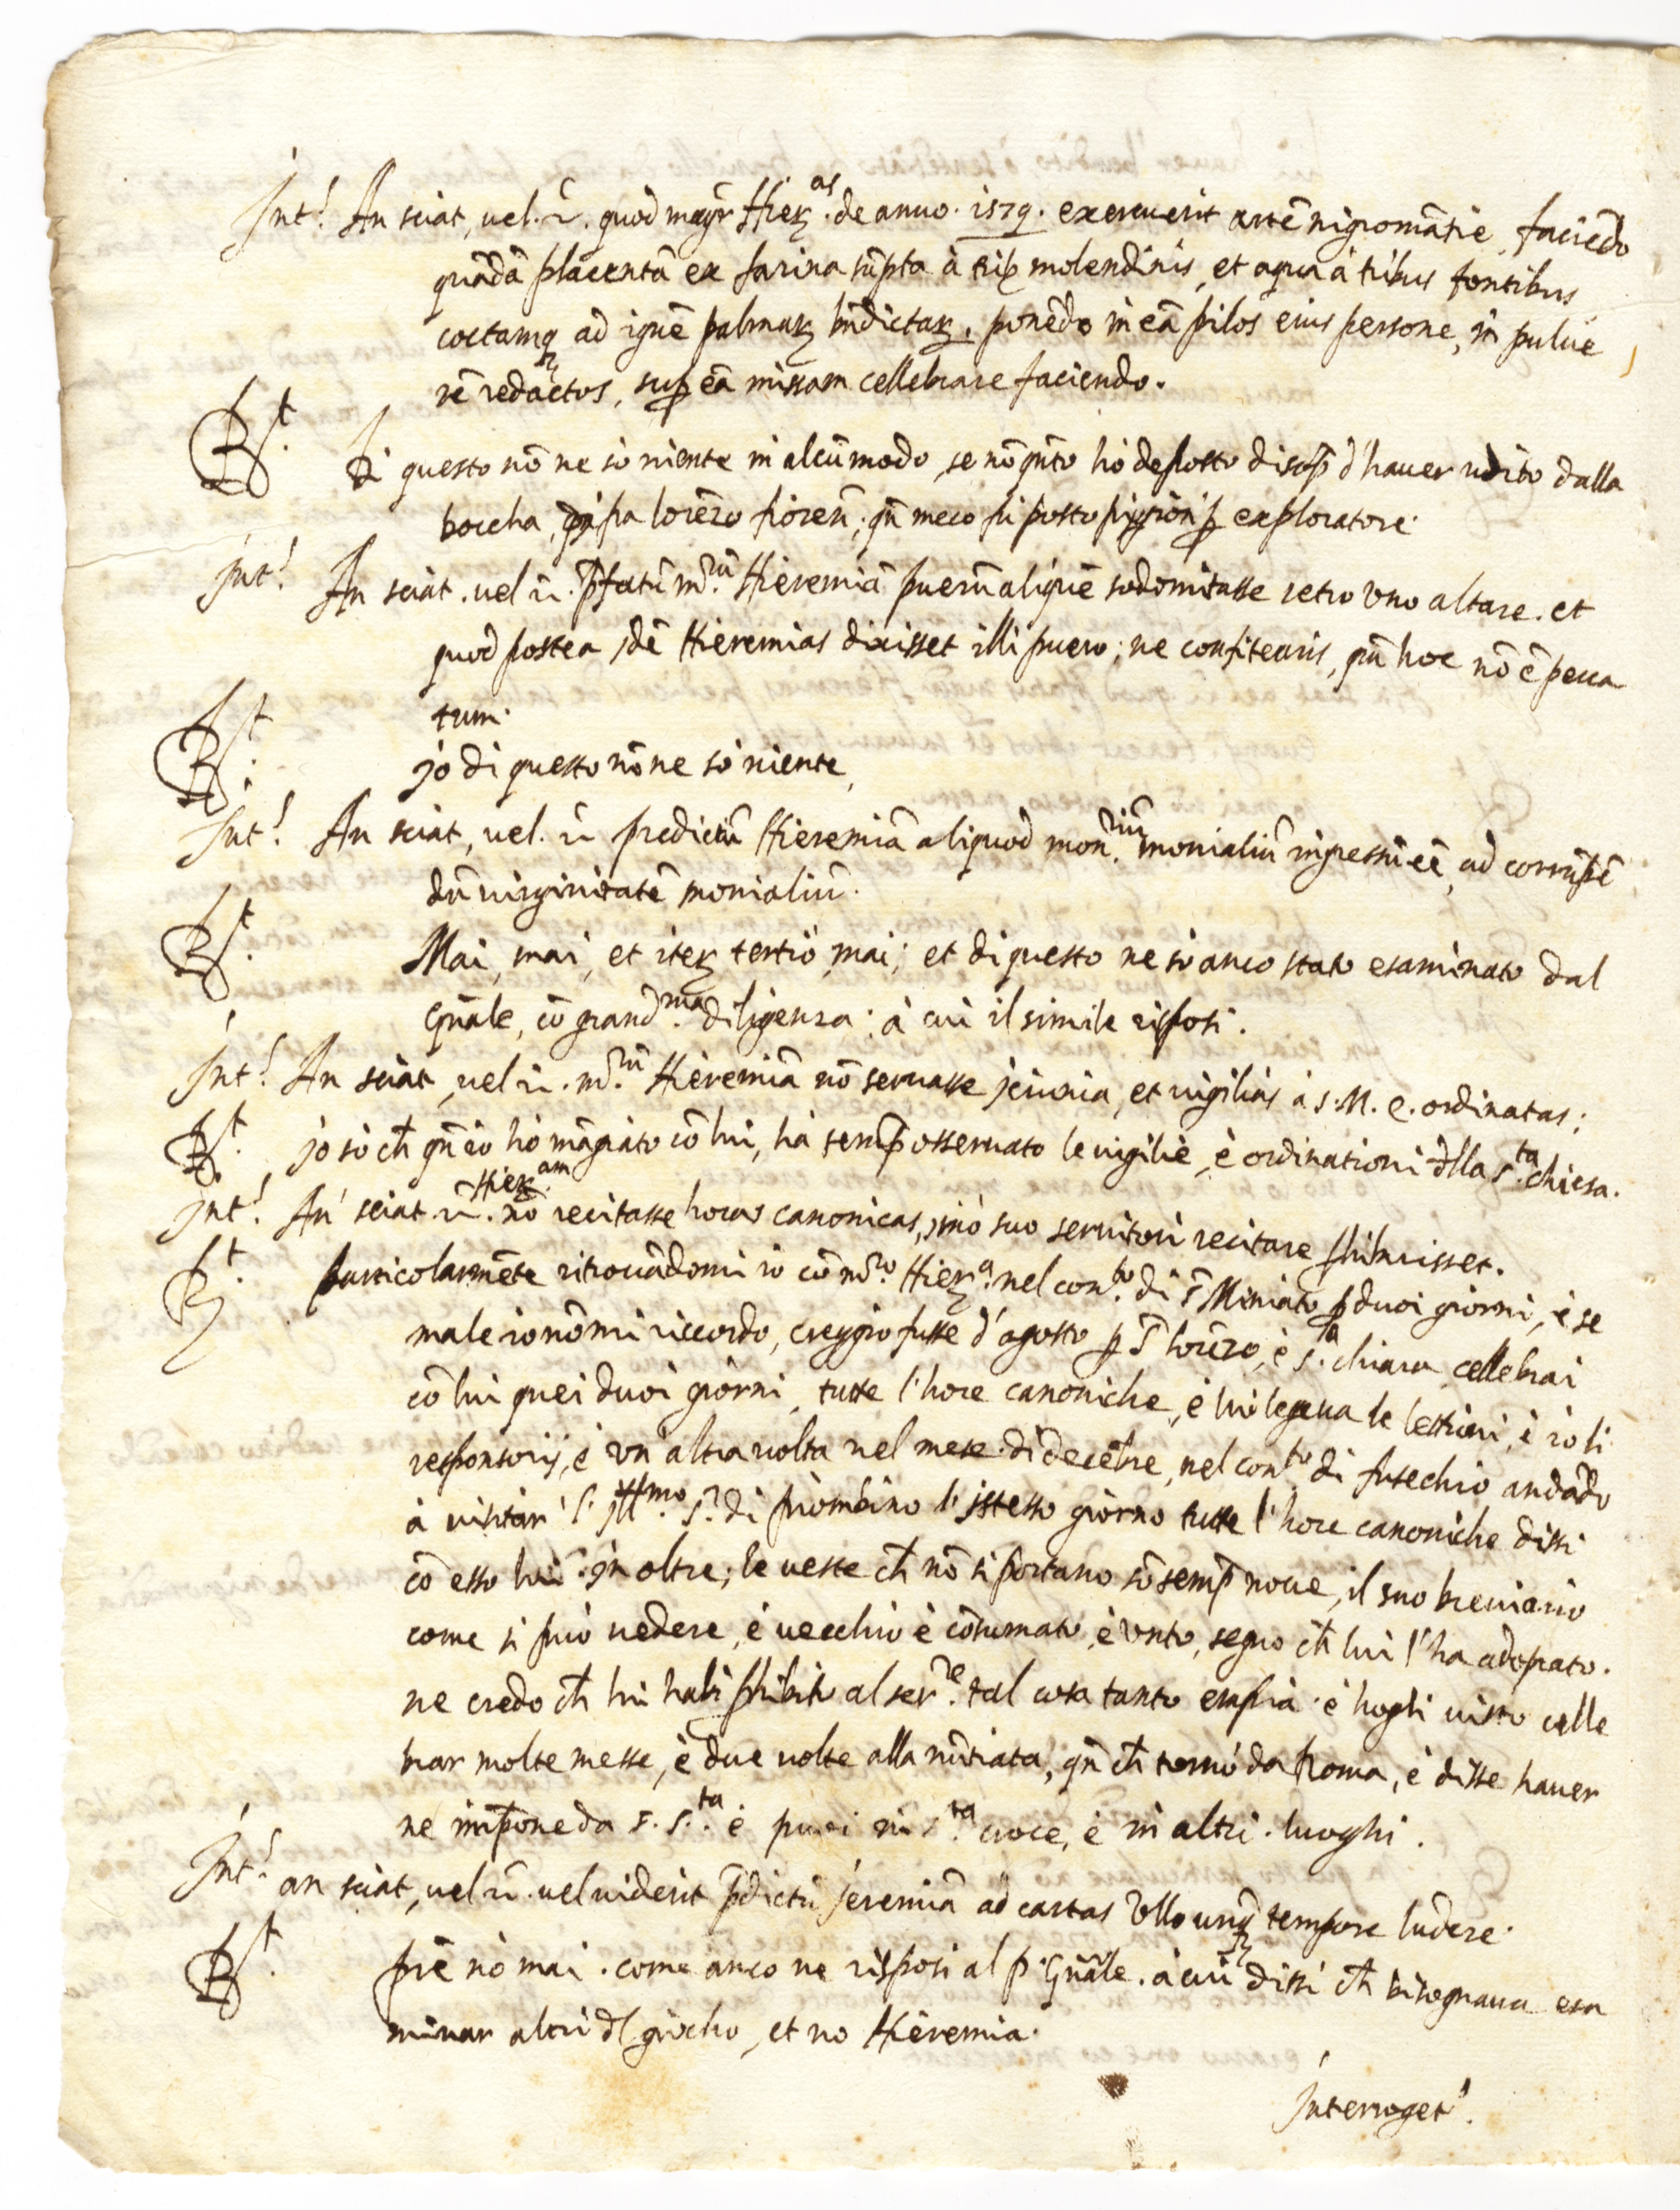 Int.! An sciat, vel. r̃. quod mag̃r Hierꝫ.as de anno. 1579. exercuerit artẽ nigromãtie, faciẽdo
quãdã placentã ex farina sũpta à trib; molendinis, et aqua à tribus fontibus
coctamq; ad ignẽ palmarꝫ bñdictarꝫ, ponẽdo in eã pilos eius persone, in pulue
rẽ redactos, sup eã missam cellebrare faciendo.
R.t Di questo nõ ne sò niente in alcũ modo, se nõ q̃nto hò deposto di sop̃ d'hauer udito dalla
boccha, fra lorẽzo fioren̄; q̃n meco fù posto ꝑ exploratore.
Int.! An sciat. vel r̃. p̃fatũ m.rũ Hieremiã puerũ aliquẽ sodomitasse retro vno altare. et
quod postea idẽ Hieremias dixisset illi puero; ne confitearis, qm̃ hoc nõ ẽ pecca
tum.
R.t io di questo nõ ne sò niente,
Int.! An sciat, vel. r̃ predictũ Hieremiã aliquod mon.riũ monialiũ ingressũ eẽ, ad corrũpẽ
dũ virginitatẽ monialiũ.
R.t Mai, mai, et iterꝫ tertiò mai; et di questo ne sò anco stato esaminato dal
Gñale, cõ grand.ma diligenza: à cui il simile risposi.
Int.! An sciat, vel r̃. m.rũ Hieremiã nõ seruasse jeiunia, et vigilias à s. M. e. ordinatas;
R.t jo sò ch̃ q̃n io hò mãgiato cõ lui, hà semp̃ osseruato le vigilie, è ordinationi d̃lla s.ta chiesa.
Int.! An sciat. r̃. Hierꝫ.am nõ recitasse horas canonicas, imò suo seruitori recitare p̃hibuisset.
R.t particolarmẽte ritrouãdomi io cõ m.ro Hierꝫ.a nel con.to di s̃ Miniato ꝑ duoi giorni, è se
male io nõ mi riccordo, creggio fusse d'agosto ꝑ s̃ lorẽzo, è s.ta chiara cellebrai
cõ lui quei duoi giorni, tutte l'hore canoniche, è lui legeua le lettioni, è io li
responsorij, è vn'altra volta nel mese di decẽbre, nel con.to di fusechio andãdo
à visitar l'Ill.mo S.r di piombino l'istesso giorno tutte l'hore canoniche dissi
cõ esso lui. jn oltre; le veste ch̃ nõ si portano sõ semp̃ noue, il suo breuiario
come si può uedere, è uecchio è cõsumato, è vnto, segno ch̃ lui l'ha adoprato.
ne credo ch̃ lui habi p̃hibito al ser.re tal cosa tanto empia. è hogli uisto celle
brar molte messe, è due uolte alla nũtiata, q̃n ch̃ tornò da Roma, è disse hauer
ne imp̃one da s. s.ta è puoi in s.ta croce, è in altri luoghi.
Int.! an sciat, vel r̃. vel uiderit p̃dictũ jeremiã ad cartas vllo unq; tempore ludere.
R.t pr̃e nò mai. come anco ne risposi al p. Gñale. à cui dissi ch̃ bisognaua esa
minar altri d̃l giocho, et no Hieremia.
Interroget.!